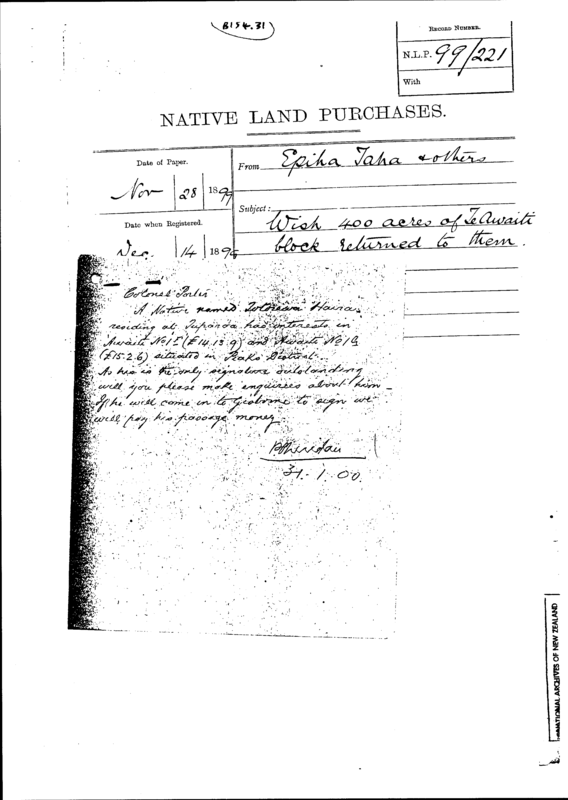 B154.31
RECORD NUMBER.
N.L.P. 99/221
With
NATIVE LAND PURCHASES.
Date of Paper.
Nov 28 1899
Date when Registered.
Dec. 14 189
From Epiha Taha & others
Subject:
Wish 400 acres of Te Awaiti
block returned to them.
Colonel Porter
A Native named Haira
residing at has interests in
Awaiti No 1 (£14.13.9) and Awaiti No 1
(£15.2.6) situated in District.
As his is the only signature outstanding
will you please make enquiries about him -
If he will come in to Gisborne to sign we
will pay his passage money
P Sheridan
31.1.00
NATIONAL ARCHIVES OF NEW ZEALAND